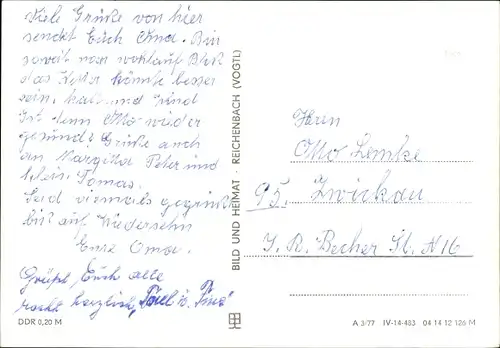 Viele Grüße von hier
sendet Euch Oma. Bin
soweit noch wohlauf Bloß
das Wetter könnte besser
sein, kalt und Wind
Ist denn Otto wieder
gesund? Grüße auch
an Margitta Peter und
klein Tomas.
Seid vielmals gegrüßt
bis auf Wiedersehn
Eure Oma.
Grüße Euch alle
recht herzlich,
DDR 0,20 M
BILD UND HEIMAT · REICHENBACH (VOGTL)
Herrn
Otto Lemke
95. Zwickau
J. R. Becher St. N 16
A 3/77 IV-14-483 04 14 12 126 M